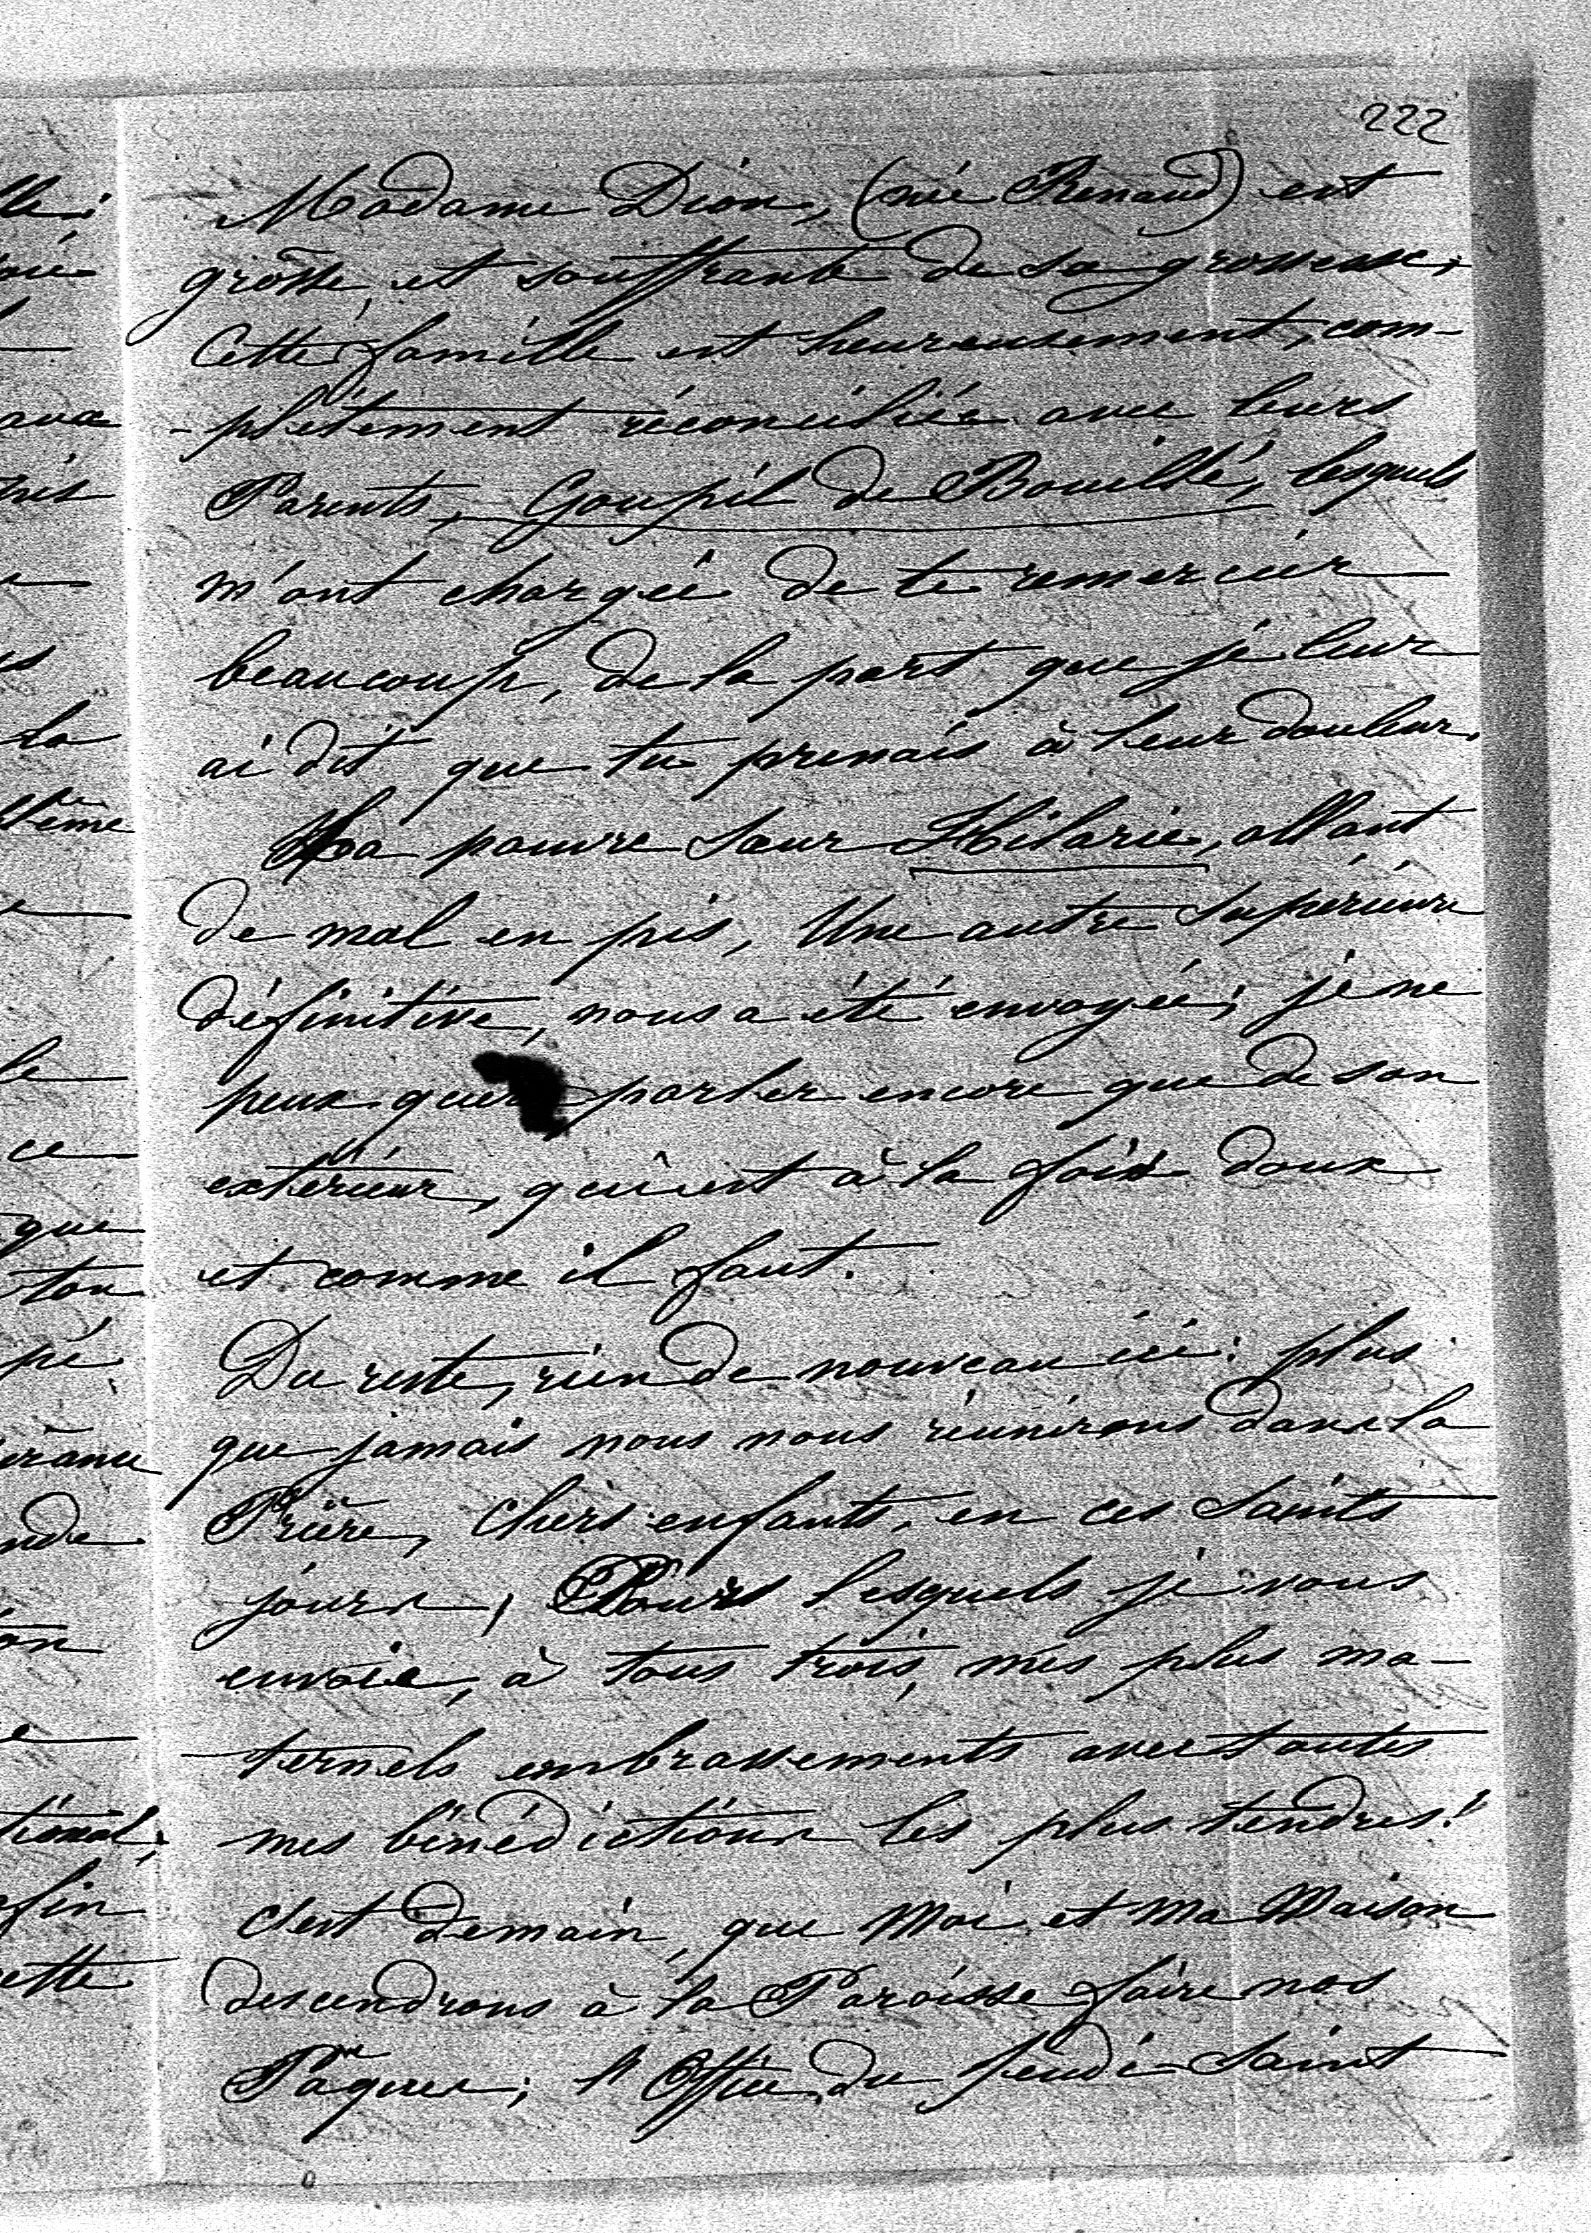 222
Madame Dion, (née Renaud) est
grosse et souffrante de sa grossesse,
Cette famille est heureusement, com-
-plétement réconciliée avec leurs
Parents, Goupil de Bouillé, lesquels
m'ont chargée de te remercier
beaucoup, de la part que je leur
ai dit que tu prenais à leur douleur.
La pauvre Sœur Hilarie, allant
de mal en pis, Une autre Supérieure
définitive, nous a été envoyée; je ne
peux guère parler encore que de son
extérieur, qui est à la fois doux
et comme il faut.
Du reste, rien de nouveau ici: plus
que jamais nous nous réunirons dans la
Prière, Chers enfants, en ces Saints
jours, Pour lesquels je vous
envoie, à tous trois, mes plus ma-
-ternels embrassements avec toutes
mes bénédictions les plus tendres!
c'est demain, que Moi et Ma Maison
descendrons à la Paroisse faire nos
Pâques; l'Office du Jeudi-Saint